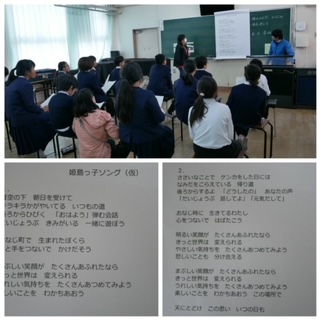 姫島っ子ソング（仮）
空の下　朝日を受けて
ラキラかがやいてる　いつもの道
ろからひびく　「おはよう」弾む会話
いじょうぶ　きみがいる　一緒に遊ぼう
なじ町で　生まれたぼくら
と手をつないで　かけだそう
ぶしい笑顔が　たくさんあふれたなら
っと世界は　変えられる
れしい気持ちを　たくさんあつめてみよう
しいことを　わかちあおう
2.
ささいなことで　ケンカした日には
なみだをこらえている　帰り道
後ろからするよ　「どうしたの」　あなたの声
「だいじょうぶ　話してよ」「元気だして」
おなじ時に　生きてるわたし
心をつないで　はばたこう
明るい笑顔が　たくさんあふれたなら
きっと世界は　変えられる
やさしい気持ちを　たくさんあつめてみよう
悲しいことも　分け合える
まぶしい笑顔が　たくさんあふれたなら
きっと世界は　変えられる
うれしい気持ちを　たくさんあつめてみよう
楽しいことを　わかちあおう　この場所で
天にとどけ　この思い　いつの日も